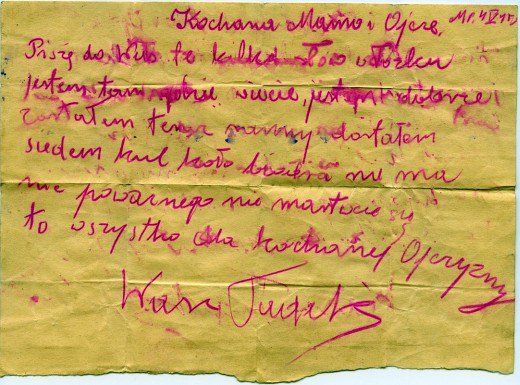 Kochana Mamo i Ojcze
Piszę do Was te kilka słów w łóżku
jestem tam gdzie wiecie, jest mi dobrze
zostałem teraz ranny dostałem
siedem kul koło biodra ni ma
nic poważnego nie martwcie się
to wszystko dla kochanej Ojczyzny
Wasz